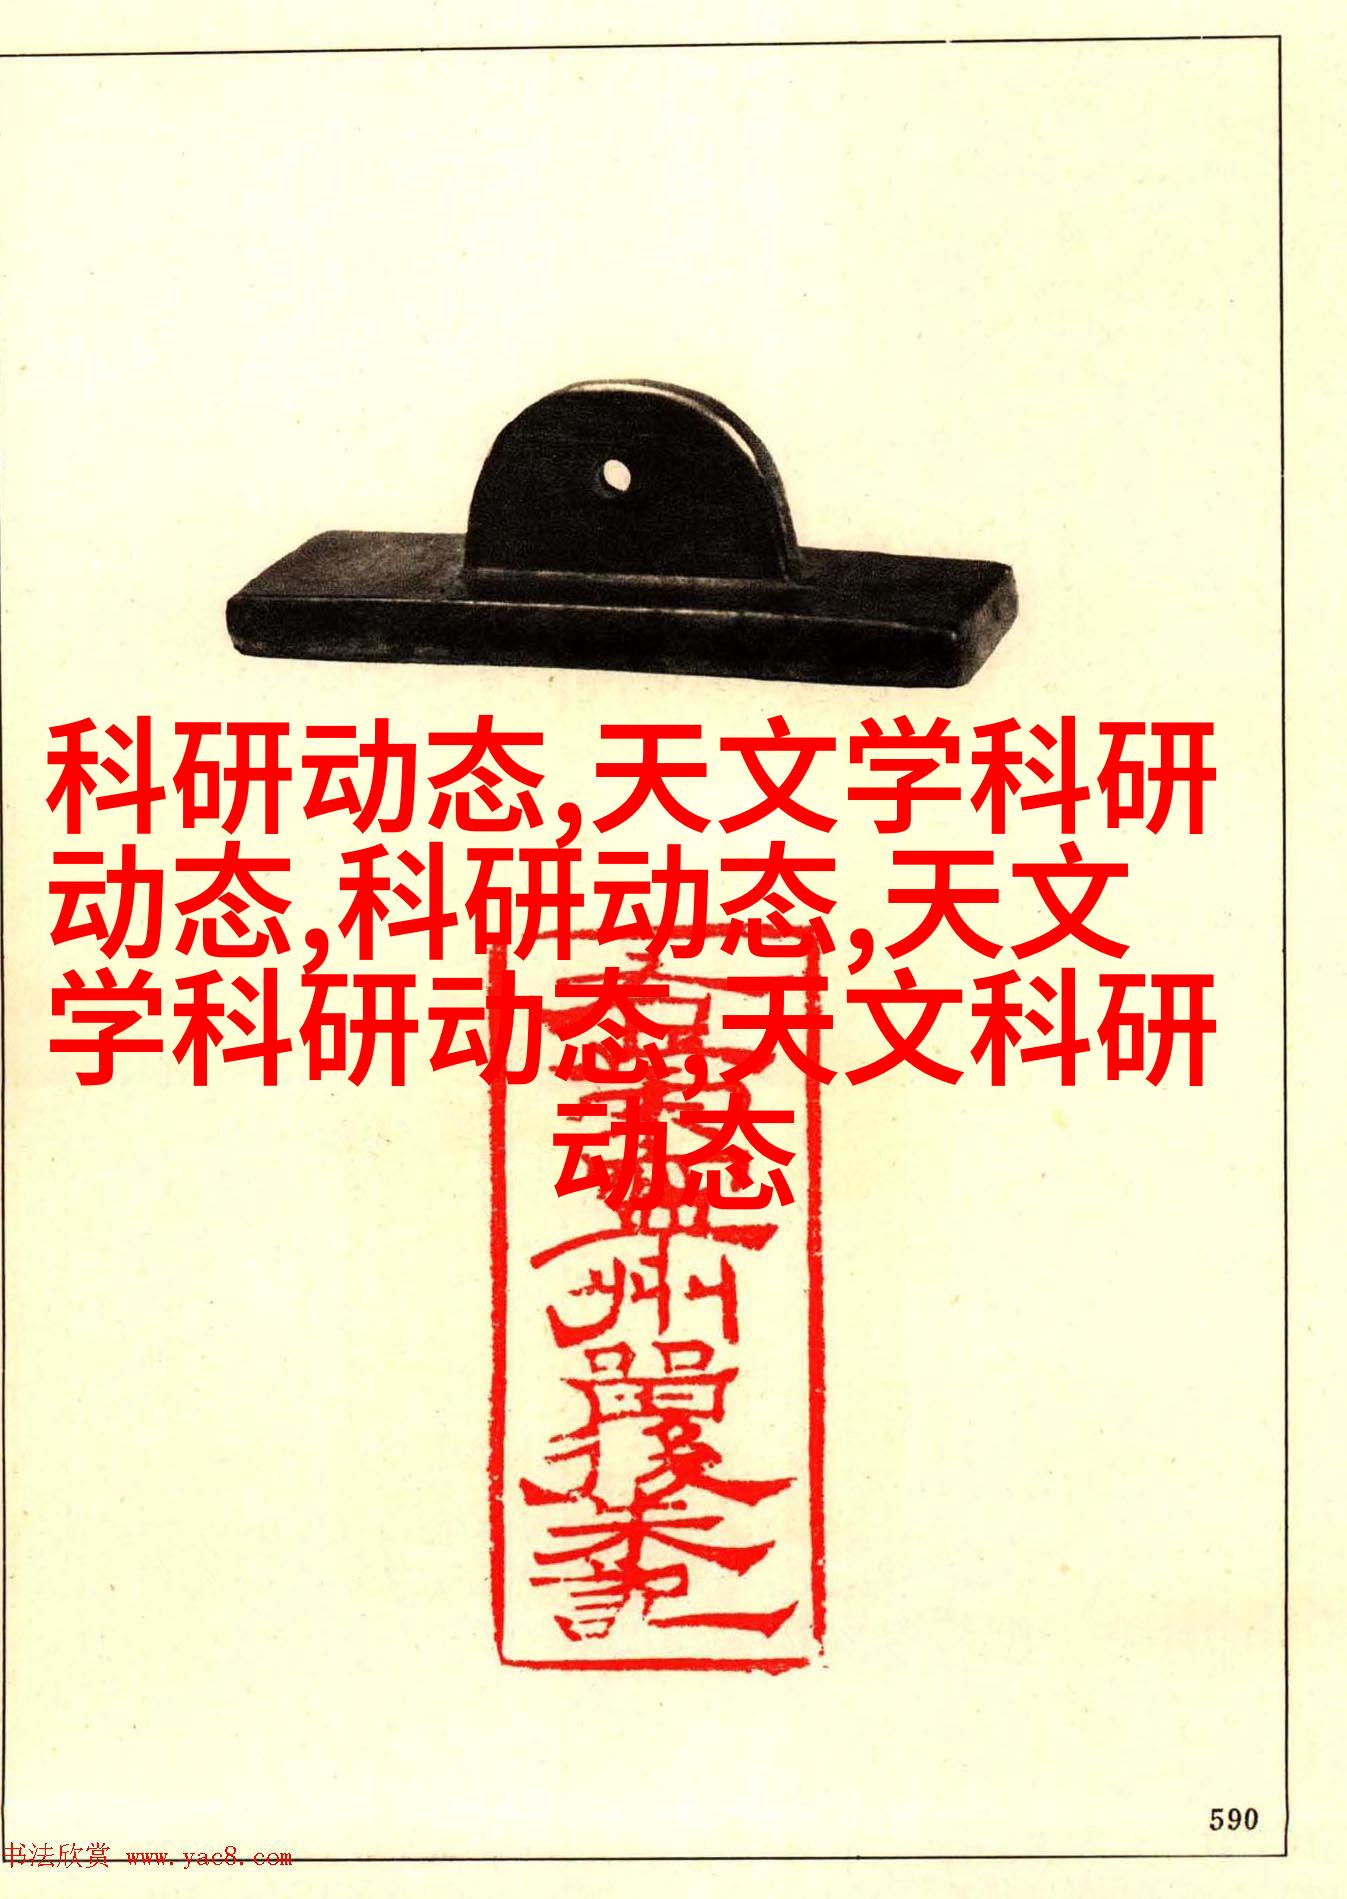 科研动态,天文学科研
动态,科研动态,天文
学科研动态,天文科研
动态
州
記
590
书法欣赏 www.yac8.com